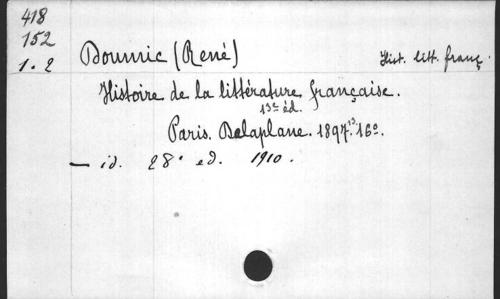 418
152
1-2
Doumic (René)
Hist. litt. franç.
Histoire de la littérature française.
13e éd.
Paris. Delaplane. 1897. 16o.
— id. 28e ed. 1910.